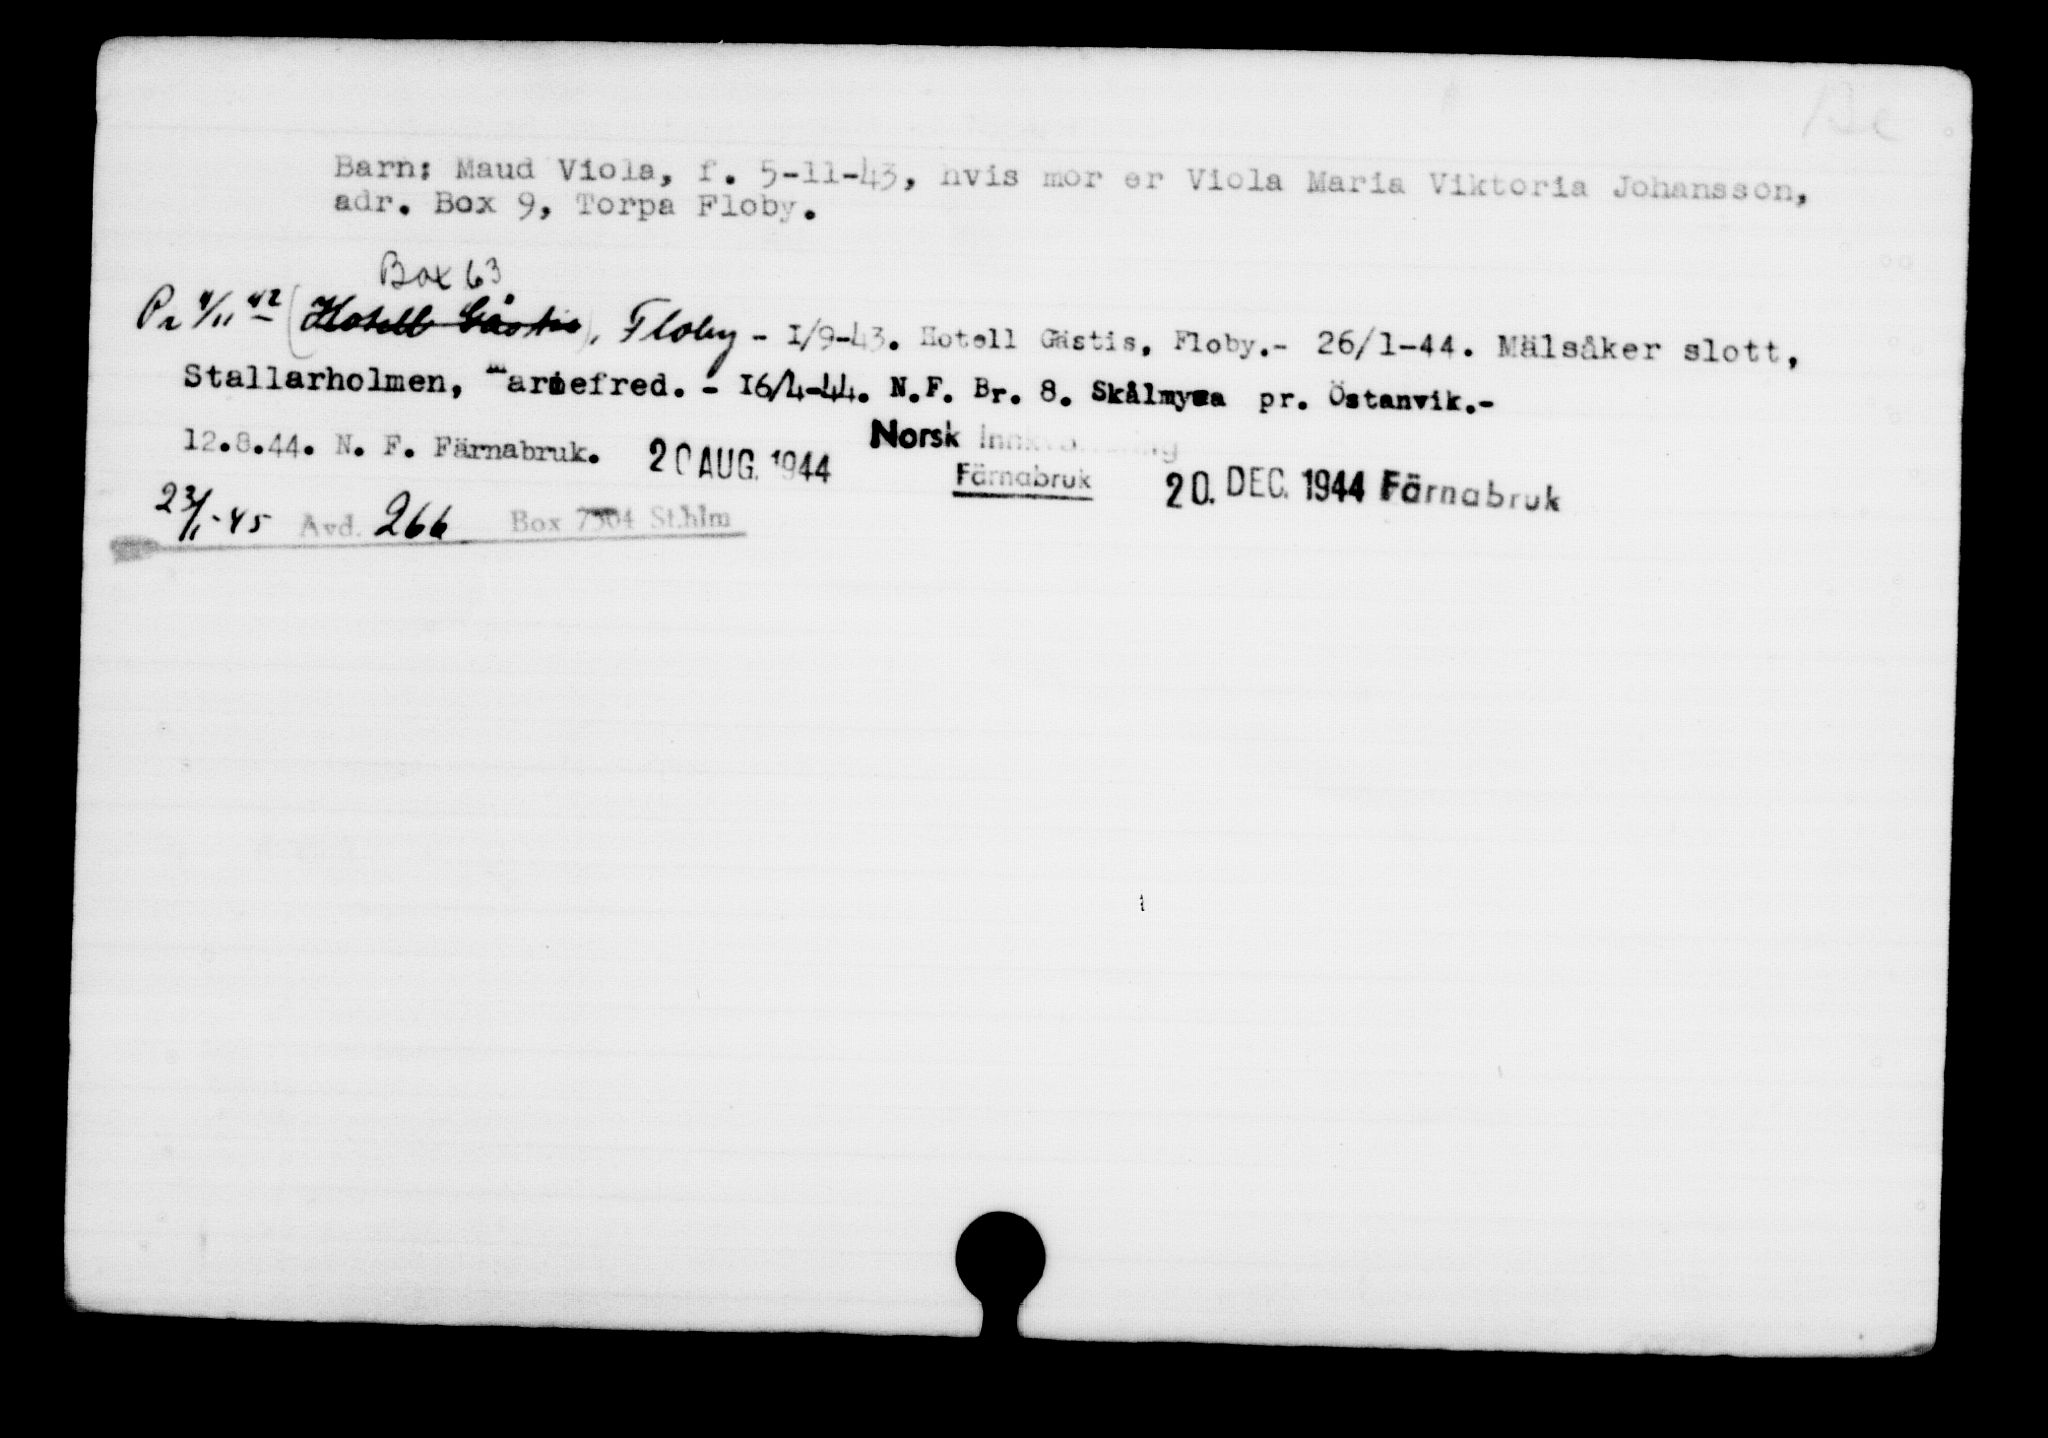 Barn: Maud Viola, f. 5-11-43, hvis mor er Viola Maria Viktoria Johansson,
adr. Box 9, Torpa Floby.
Box 63
Pr 4/11 42 (Hotell Gästis), Floby - 1/9-43. Hotell Gästis, Floby.- 26/1-44. Mälsåker slott,
Stallarholmen, mariefred. - 16/4-44. N.F. Br. 8. Skålmyra pr. Östanvik.-
12.8.44. N. F. Färnabruk. 20 AUG. 1944 Norsk
Färnabruk 20. DEC. 1944 Färnabruk
23/1-45 Avd. 266 Box 7304 Sthlm